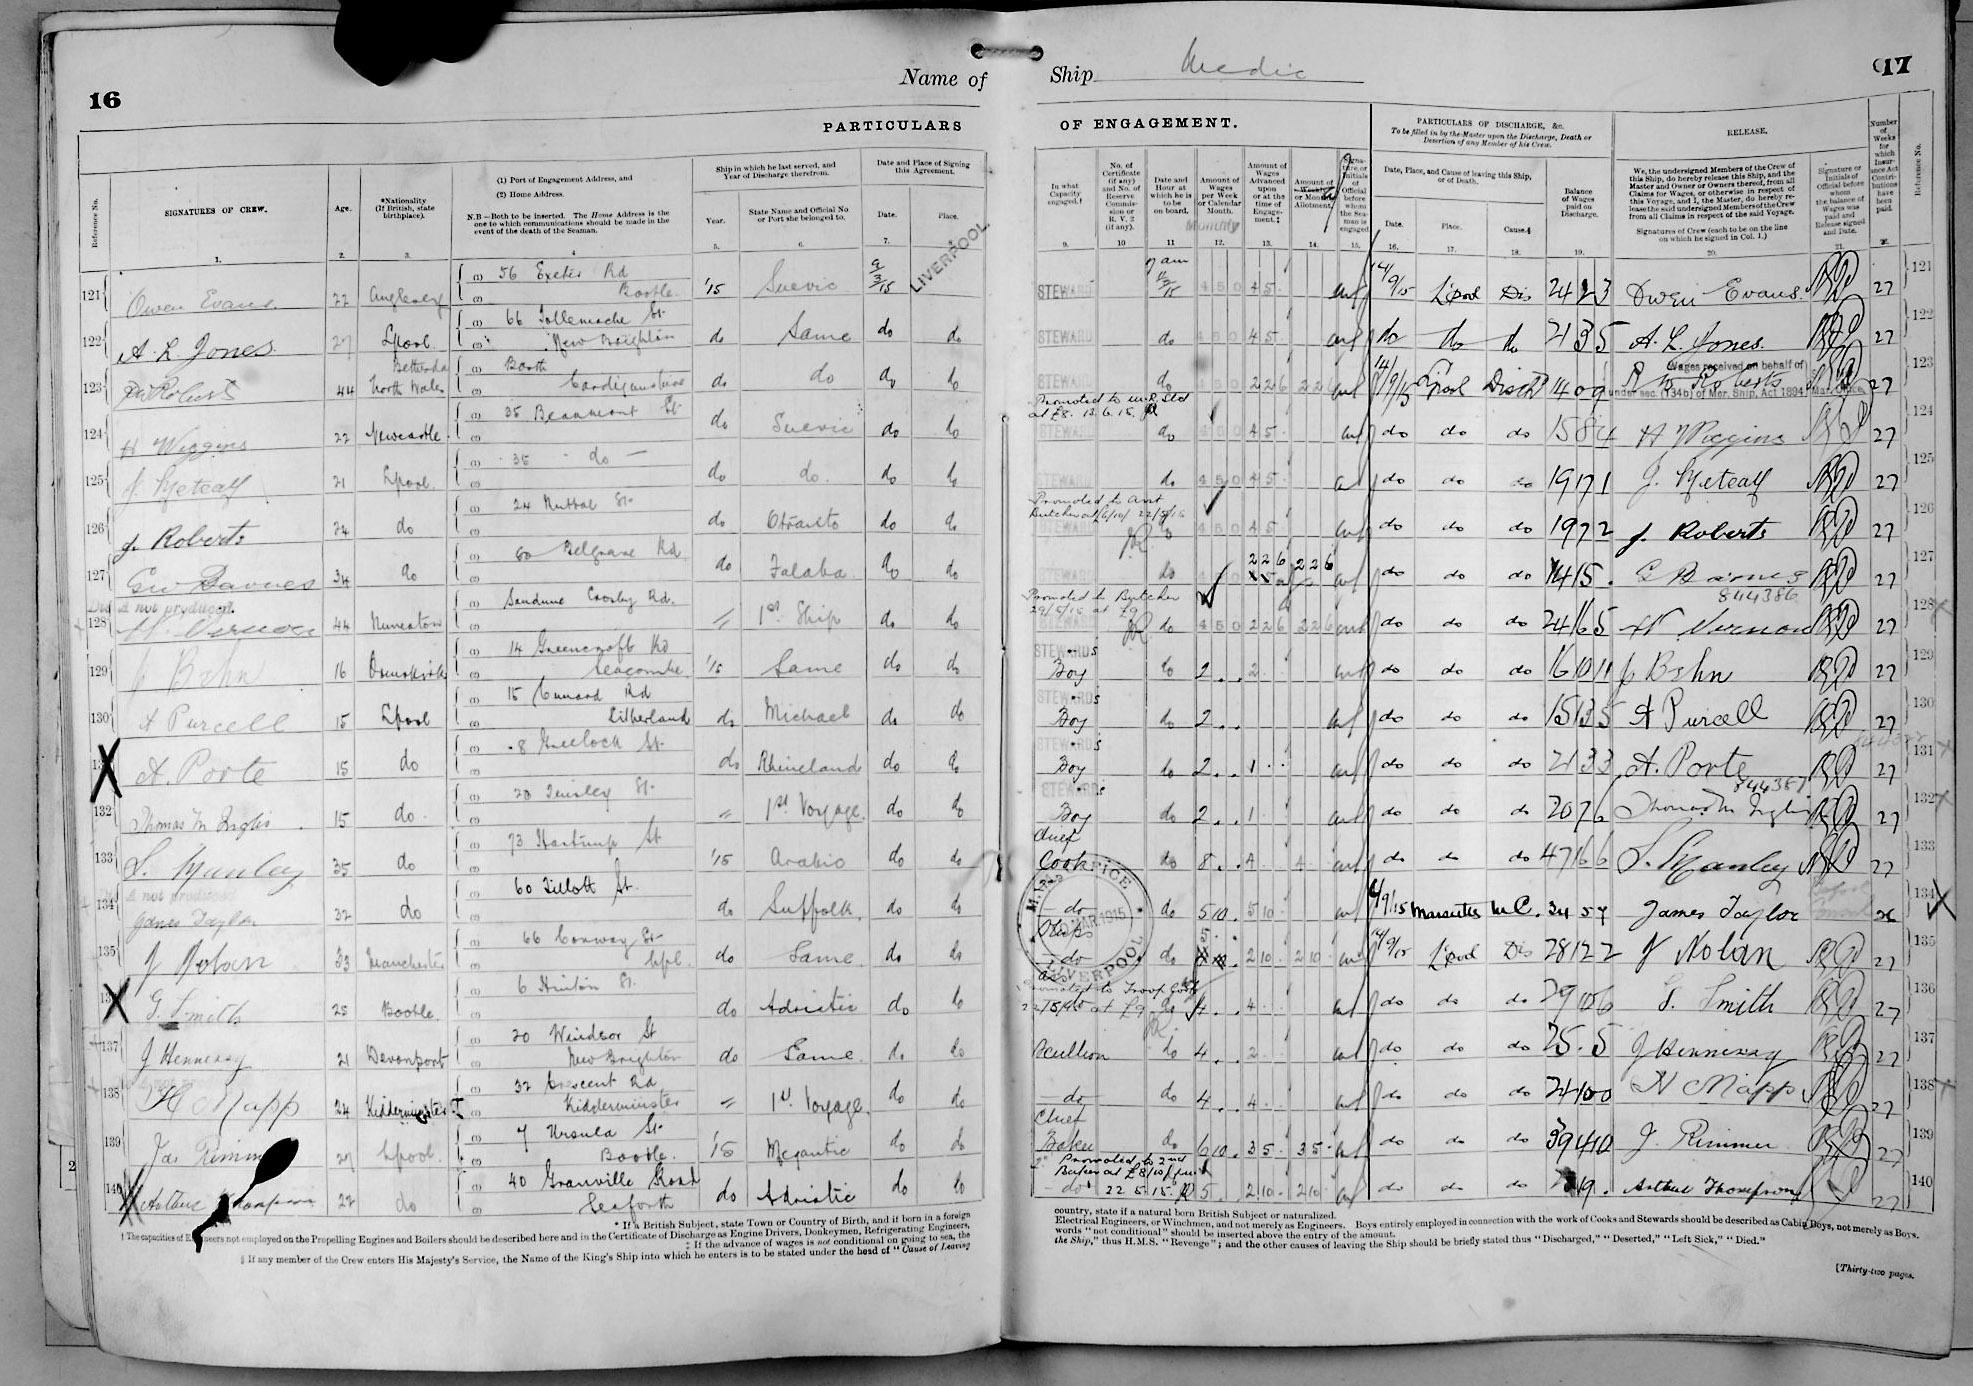 16
Name of
Ship
Medic
17
PARTICULARS
OF ENGAGEMENT.
Reference No.
SIGNATURES OF CREW.
1.
Age.
2.
*Nationality
(If British, state
birthplace).
3.
(1) Port of Engagement Address, and
(2) Home Address.
N.B—Both to be inserted. The Home Address is the
one to which communications should be made in the
event of the death of the Seaman.
4
Ship in which he last served, and
Year of Discharge therefrom.
Year.
5.
State Name and Official No
or Port she belonged to.
6.
Date and Place of Signing
this Agreement.
Date.
7.
Place.
LIVERPOOL.
In what
Capacity
engaged.†
9.
No. of
Certificate
(if any)
and No. of
Reserve
Commis-
sion or
R. V. 2
(if any).
10
Date and
Hour at
which he is
to be
on board.
11
Amount of
Wages
per Week
or Calendar
Month.
Monthly
12.
Amount of
Wages
Advanced
upon
or at the
time of
Engage-
ment.‡
13.
Amount of
Allotment.
14.
Signa-
ture or
Initials
of
Official
before
whom
the Sea-
man is
engaged
15.
PARTICULARS OF DISCHARGE, &c.
To be filled in by the Master upon the Discharge, Death or
Desertion of any Member of his Crew.
Date, Place, and Cause of leaving this Ship,
or of Death.
Date.
16.
Place.
17.
Cause.§
18.
Balance
of Wages
paid on
Discharge.
19.
RELEASE.
We, the undersigned Members of the Crew of
this Ship, do hereby release this Ship, and the
Master and Owner or Owners thereof, from all
Claims for Wages, or otherwise in respect of
this Voyage, and I, the Master, do hereby re-
lease the said undersigned Members of the Crew
from all Claims in respect of the said Voyage.
Signatures of Crew (each to be on the line
on which he signed in Col. 1.)
20.
Signature or
Initials of
Official before
whom
the balance of
Wages was
paid and
Release signed
and Date.
21.
Number
of
Weeks
for
which
Insur-
ance Act
Contri-
butions
have
been
paid.
Reference No.
121 Owen Evans 22 Anglesey 56 Exeter Rd '15 Suevic LIVERPOOL 7 am STEWARD 450 45 14/9/15 L'pool Dis 24 2 3 Owen Evans 27 121
Bootle.
122 A. L. Jones 27 Lpool. 66 Tollemache St do Same do do STEWARD do 450 45 do do do 2 3 5 A. L. Jones. 27 122
New Brighton
123 Roberts 44 Bethesda North Wales Borth do do do do STEWARD do 450 226 14/9/15 L'pool Disch 14 0 9 Roberts 27 123
Cardiganshire
Wages received on behalf of
under sec. (134b) of Mer. Ship. Act 1894
124 H Wiggins 22 Newcastle 35 Beaumont St do Suevic do do STEWARD do 450 45 do do do 15 8 4 H Wiggins 27 124
125 J. Metcalf 21 Lpool. 35 do do do. do do STEWARD do 450 45 do do do 19 17 1 J. Metcalf 27 125
126 J. Roberts 24 do 24 Nuttal St. do Otranto do do STEWARD 450 45 do do do 19 7 2 J. Roberts 27 126
127 Geo Barnes 34 do 60 Belgrave Rd do Falaba do do STEWARD do 226 226 do do do 14 15 . G Barnes 27 127
844386
not produced
128 H. Vernon 44 Nuneaton Crosby Rd. 1st Ship do do STEWARD do 450 226 226 do do do 24 16 5 H Vernon 27 128
Promoted to Butcher
29/5/15 at £9
129 J Behn 16 Ormskirk 14 Greencroft Rd '15 Same do do STEWARD'S Boy do 2 . . 2 do do do 16 10 11 J Behn 27 129
Seacombe
130 A Purcell 15 Lpool 15 Cunard Rd do Michael do do STEWARD'S Boy do 2 . . do do do 15 13 5 A Purcell 27 130
Litherland
A. Porte 15 do 8 Greelock St do Rhineland do do STEWARD'S Boy do 2 . . 1 do do do 2 13 3 A. Porte 27 131
844387
132 Thomas M Inglis 15 do 20 Tinsley St 1st Voyage. do do STEWARD'S Boy do 2 . . 1 do do do 20 7 6 Thomas M Inglis 27 132
133 S. Manley 35 do 73 Hartnup St '15 Arabic do do Chief Cook do 8 . . 4 4 do do do 47 16 6 S. Manley 27 133
134 James Taylor 32 do 60 Tillott St. do Suffolk do do do do 5 10 . 5 10 4/9/15 Marseilles M.C. 34 5 7 James Taylor 26 134
135 J Nolan 33 Manchester 66 Conway St do Same do do do do 2 10 2 10 14/9/15 L'pool Dis 28 12 2 J Nolan 27 135
Promoted to Troop Cook
G. Smith 25 Bootle. 6 Hinton St. do Adriatic do do 4 . . 4 do do do 29 10 6 G. Smith 27 136
137 J Hennessy 21 Devonport 20 Windsor St do Same. do do Scullion do 4 . . 2 do do do 25 . 5 J Hennessy 27 137
New Brighton
138 H Mapp 24 Kidderminster 32 Crescent Rd 1st Voyage. do do do do 4 . . 4 do do do 24 10 0 H Mapp 27 138
Kidderminster
139 Jas Rimm 27 Lpool. 7 Ursula St '15 Megantic do do Chief Baker do 6 10 3 5 3 5 do do do 39 4 10 J. Rimmer 27 139
Bootle.
Promoted to 2nd
Baker at £8/10/
140 Arthur 22 do 40 Granville Road do Adriatic do do do 22 5 15 5 . . 2 10 2 10 do do do 19 . Arthur Thompson 27 140
Seaforth
M.M. OFFICE
MAR. 1915
LIVERPOOL
* If a British Subject, state Town or Country of Birth, and if born in a foreign
† The capacities of Engineers not employed on the Propelling Engines and Boilers should be described here and in the Certificate of Discharge as Engine Drivers, Donkeymen, Refrigerating Engineers,
‡ If the advance of wages is not conditional on going to sea, the
§ If any member of the Crew enters His Majesty's Service, the Name of the King's Ship into which he enters is to be stated under the head of "Cause of Leaving
country, state if a natural born British Subject or naturalized.
Electrical Engineers, or Winchmen, and not merely as Engineers. Boys entirely employed in connection with the work of Cooks and Stewards should be described as Cabin Boys, not merely as Boys.
words "not conditional" should be inserted above the entry of the amount.
the Ship," thus H.M.S. "Revenge"; and the other causes of leaving the Ship should be briefly stated thus "Discharged," "Deserted," "Left Sick," "Died."
[Thirty-two pages.
2